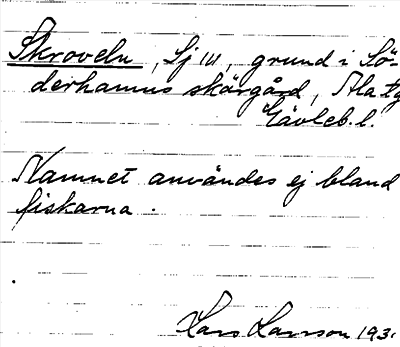 Skroveln, Sj 14, grund i Sö-
derhamns skärgård, Ala tg
Gävleb. l.
Namnet användes ej bland
fiskarna.
Lars Larsson 193